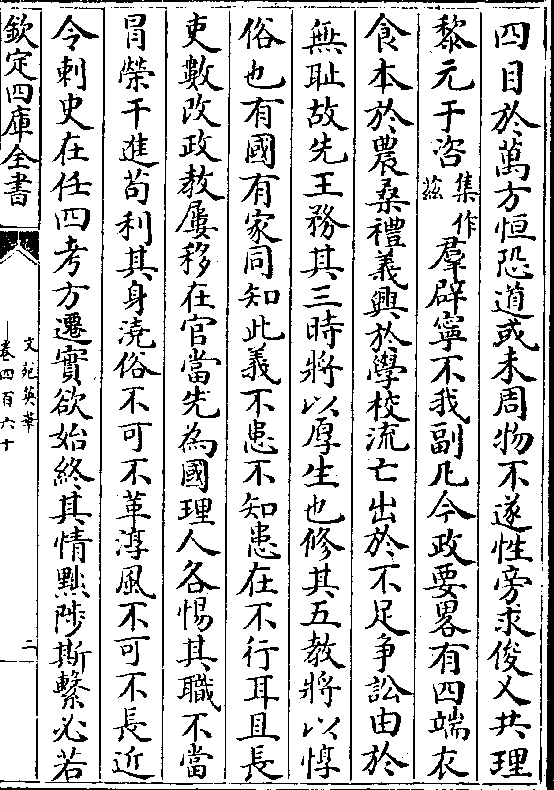 四目於萬方恒恐道或未周物不遂性旁求俊乂共理
黎元于咨集作茲羣辟寧不我副凡今政要畧有四端衣
食本於農桑禮義興於學校流亡出於不足争訟由於
無耻故先王務其三時將以厚生也修其五教將以惇
俗也有國有家同知此義不患不知患在不行耳且長
吏數改政教屢移在官當先為國理人各惕其職不當
冐榮干進苟利其身澆俗不可不革淳風不可不長近
令刺史在任四考方遷實欲始終其情黜陟斯繫必若
欽定四庫全書
文苑英華
卷四百六十
二